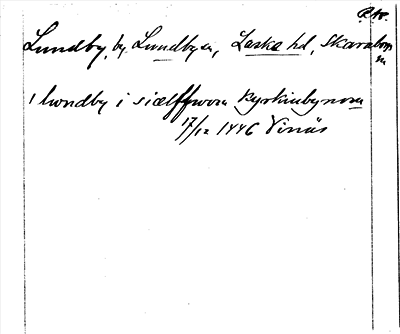 P.to.
Lundby, by, Lundby sn, Laske hd, Skarabors
ln
i lwndby i siælffwom kyrkiabynom
17/12 1446 Vinäs